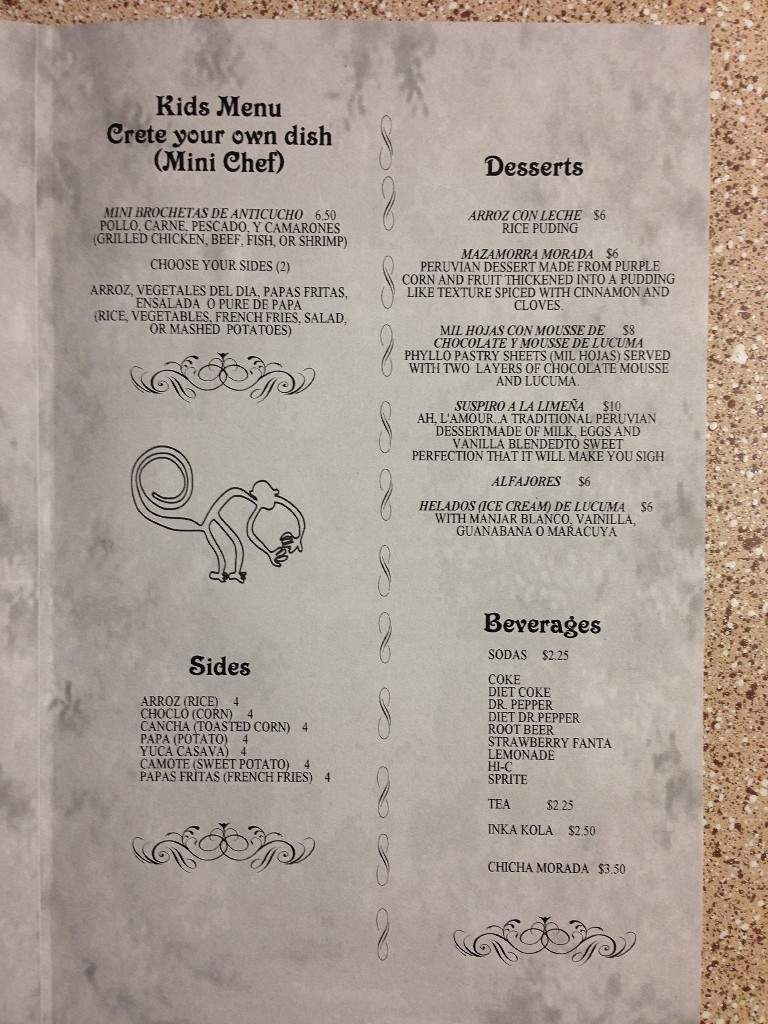 Kids Menu
Crete your own dish
(Mini Chef)
MINI BROCHETAS DE ANTICUCHO 6.50
POLLO, CARNE, PESCADO, Y CAMARONES
(GRILLED CHICKEN, BEEF, FISH, OR SHRIMP)
CHOOSE YOUR SIDES (2)
ARROZ, VEGETALES DEL DIA, PAPAS FRITAS,
ENSALADA O PURE DE PAPA
(RICE, VEGETABLES, FRENCH FRIES, SALAD,
OR MASHED POTATOES)
Sides
ARROZ (RICE) 4
CHOCLO (CORN) 4
CANCHA (TOASTED CORN) 4
PAPA (POTATO) 4
YUCA CASAVA) 4
CAMOTE (SWEET POTATO) 4
PAPAS FRITAS (FRENCH FRIES) 4
Desserts
ARROZ CON LECHE $6
RICE PUDING
MAZAMORRA MORADA $6
PERUVIAN DESSERT MADE FROM PURPLE
CORN AND FRUIT THICKENED INTO A PUDDING
LIKE TEXTURE SPICED WITH CINNAMON AND
CLOVES.
MIL HOJAS CON MOUSSE DE $8
CHOCOLATE Y MOUSSE DE LUCUMA
PHYLLO PASTRY SHEETS (MIL HOJAS) SERVED
WITH TWO LAYERS OF CHOCOLATE MOUSSE
AND LUCUMA.
SUSPIRO A LA LIMEÑA $10
AH, L'AMOUR..A TRADITIONAL PERUVIAN
DESSERTMADE OF MILK, EGGS AND
VANILLA BLENDEDTO SWEET
PERFECTION THAT IT WILL MAKE YOU SIGH
ALFAJORES $6
HELADOS (ICE CREAM) DE LUCUMA $6
WITH MANJAR BLANCO, VAINILLA,
GUANABANA O MARACUYA
Beverages
SODAS $2.25
COKE
DIET COKE
DR. PEPPER
DIET DR PEPPER
ROOT BEER
STRAWBERRY FANTA
LEMONADE
HI-C
SPRITE
TEA $2.25
INKA KOLA $2.50
CHICHA MORADA $3.50